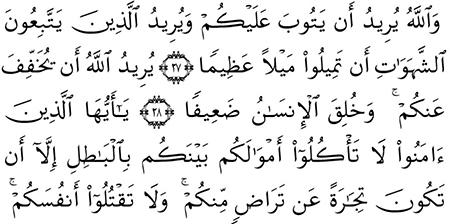 وَٱللَّهُ يُرِيدُ أَن يَتُوبَ عَلَيْكُمْ وَيُرِيدُ ٱلَّذِينَ يَتَّبِعُونَ
ٱلشَّهَوَٰتِ أَن تَمِيلُوا۟ مَيْلًا عَظِيمًا ٢٧ يُرِيدُ ٱللَّهُ أَن يُخَفِّفَ
عَنكُمْ ۚ وَخُلِقَ ٱلْإِنسَـٰنُ ضَعِيفًا ٢٨ يَـٰٓأَيُّهَا ٱلَّذِينَ
ءَامَنُوا۟ لَا تَأْكُلُوٓا۟ أَمْوَٰلَكُم بَيْنَكُم بِٱلْبَـٰطِلِ إِلَّآ أَن
تَكُونَ تِجَـٰرَةً عَن تَرَاضٍ مِّنكُمْ ۚ وَلَا تَقْتُلُوٓا۟ أَنفُسَكُمْ ۚ